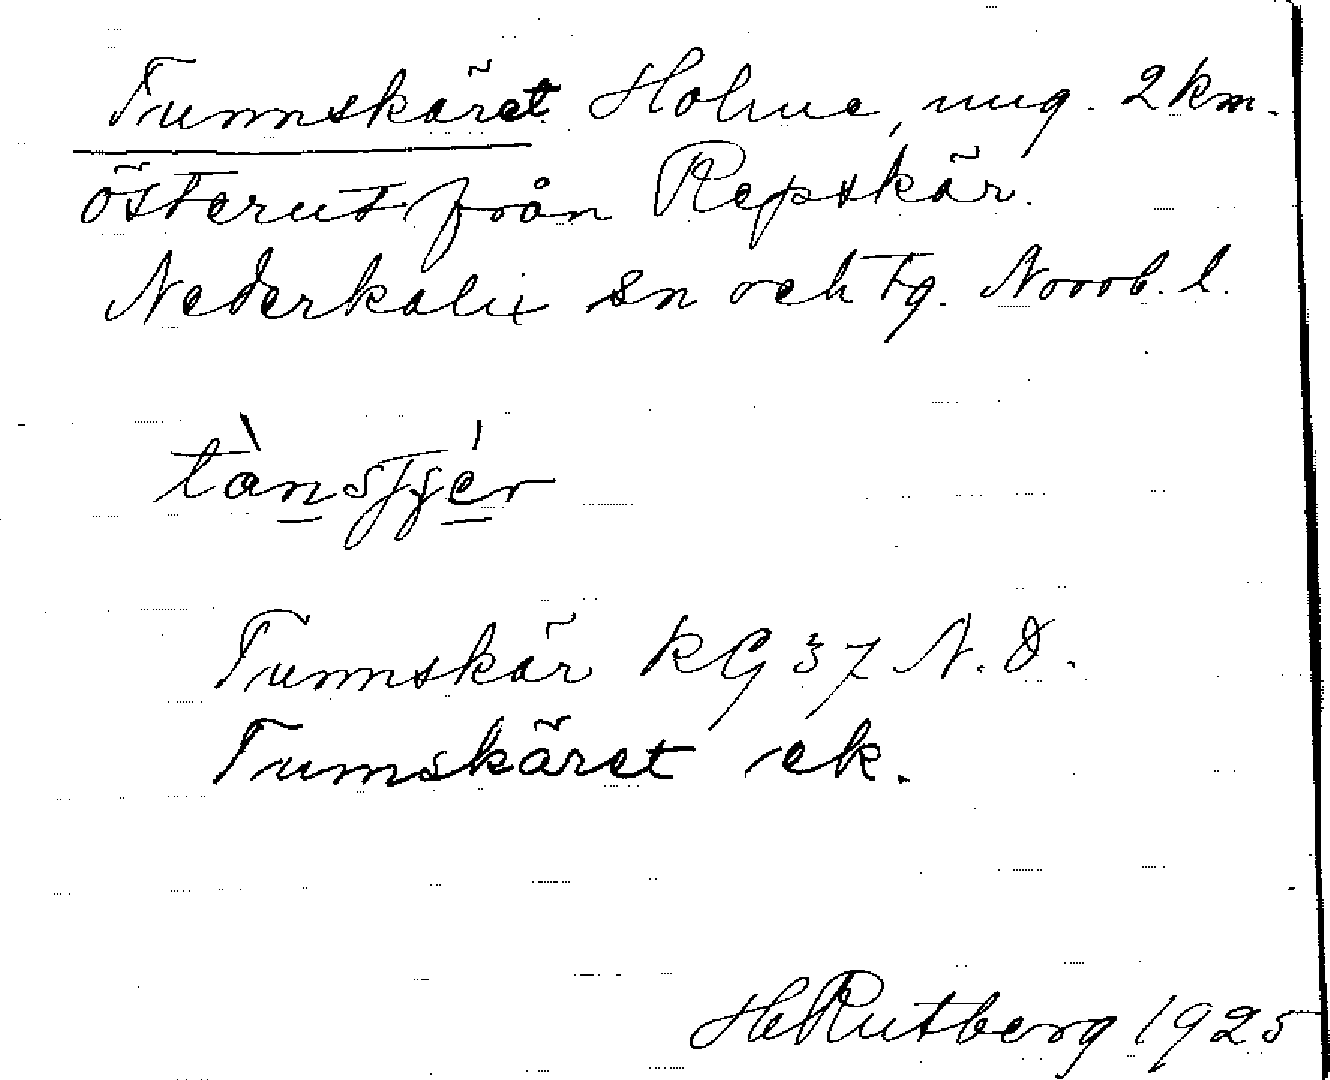 Tunnskäret Holme, ung. 2 km.
österut från Repskär.
Nederkalix sn och tg. Norrb. l.
tànstjér
Tunnskär KG 37 N.O.
Tunnskäret ek.
H Rutberg 1925